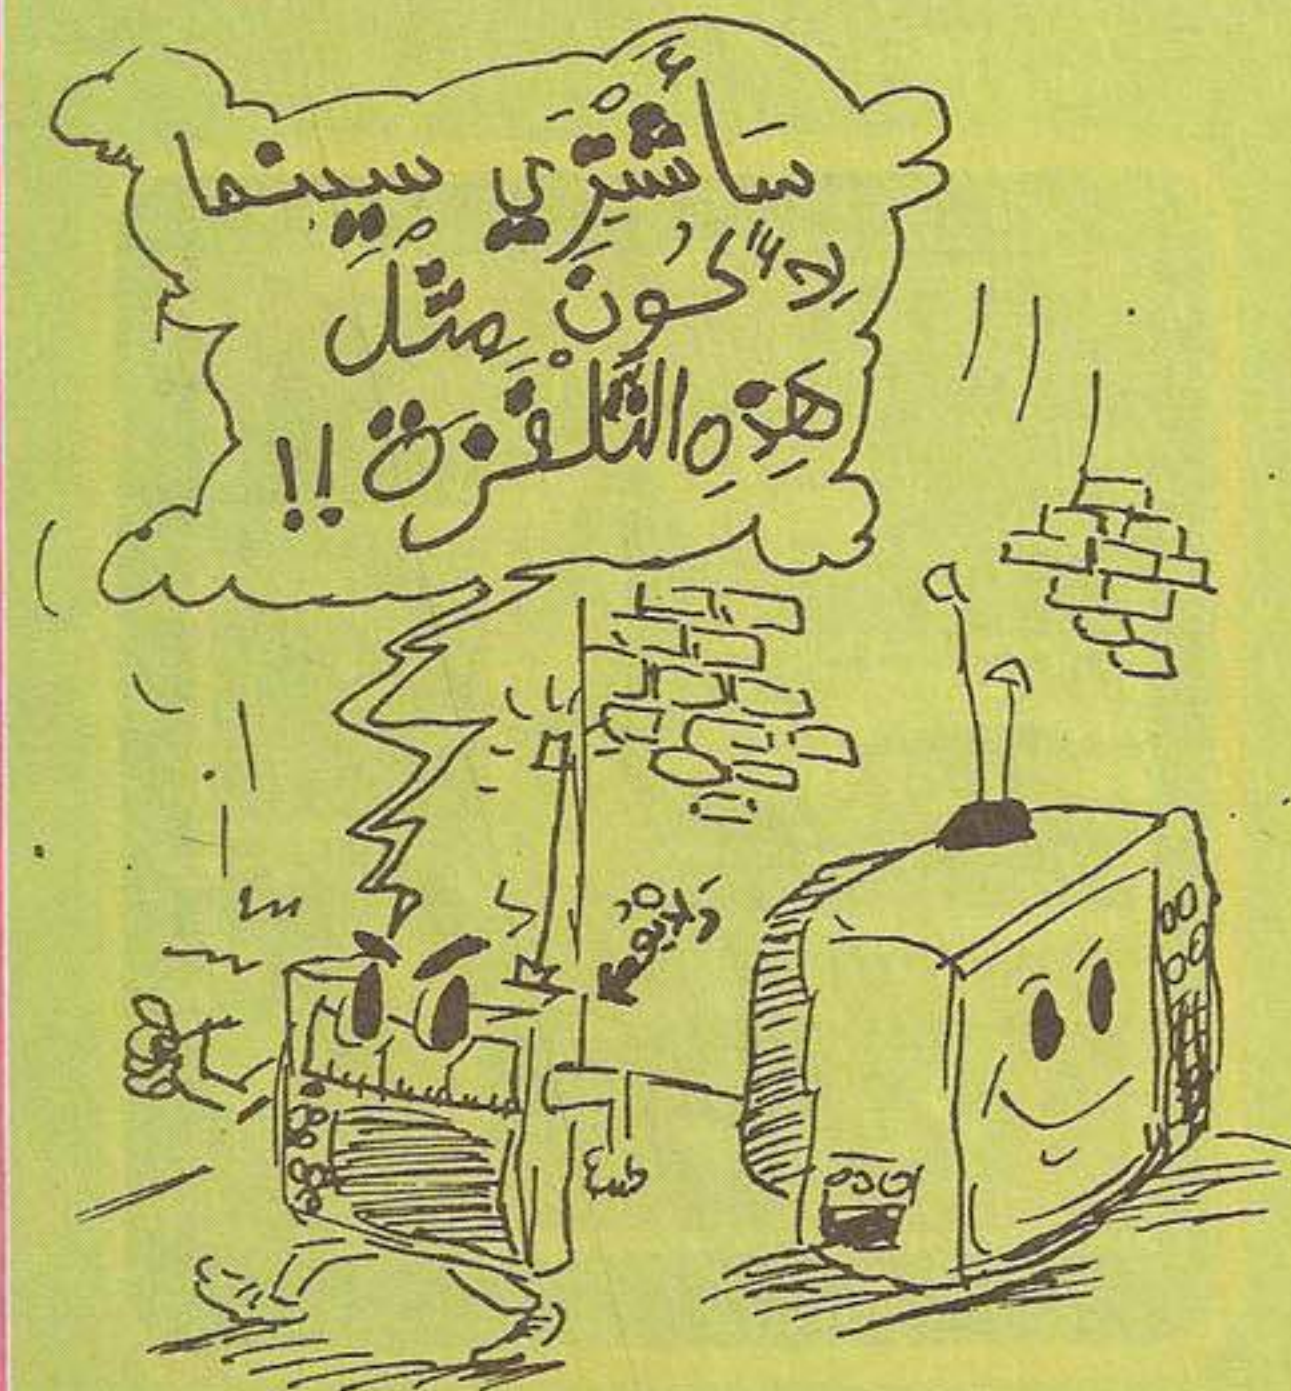 سَأَشْتَرِي سِينما
لِأَكُونَ مِثْلَ
هَذِهِ التَّلْفَزَةِ !!
رَادْيُو